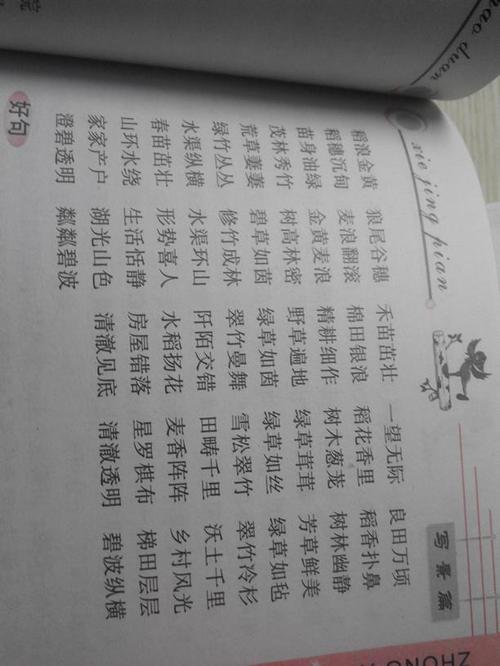 xie jing pian
写景篇
稻浪金黄 狼尾谷穗 禾苗茁壮 一望无际 良田万顷
稻穗沉甸 麦浪翻滚 棉田银浪 稻花香里 稻香扑鼻
苗身油绿 金黄麦浪 精耕细作 树木葱茏 树林幽静
茂林秀竹 树高林密 野草遍地 绿草茸茸 芳草鲜美
荒草萋萋 碧草如茵 绿草如茵 绿草如丝 绿草如毡
绿竹丛丛 修竹成林 翠竹曼舞 雪松翠竹 翠竹冷杉
水渠纵横 水渠环山 阡陌交错 田畴千里 沃土千里
春苗茁壮 形势喜人 水稻扬花 麦香阵阵 乡村风光
山环水绕 生活恬静 房屋错落 星罗棋布 梯田层层
家家户户 湖光山色 清澈见底 清澈透明 碧波纵横
澄碧透明 粼粼碧波
好句